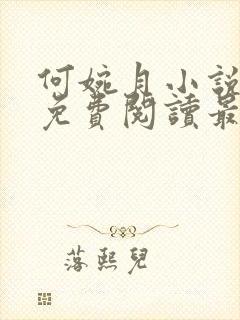 何婉月小說
免費閱讀最
落熙兒